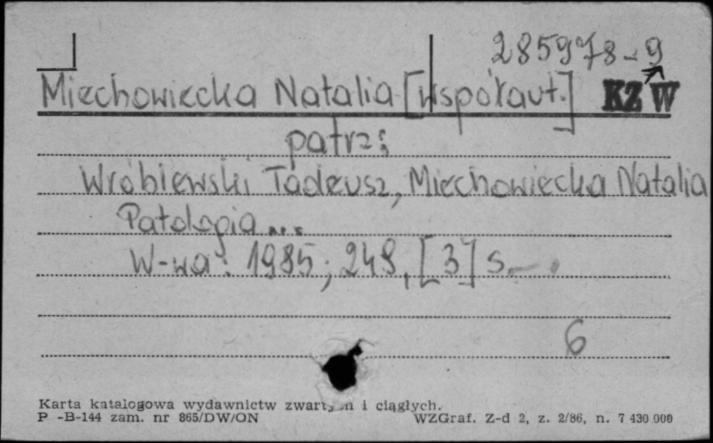 285978-9
Miechowiecka Natalia [współaut.] KZ W
patrz:
Wróblewski Tadeusz, Miechowiecka Natalia
Patologia...
W-wa: 1985; 248, [3] s.
6
Karta katalogowa wydawnictw zwartych i ciągłych.
P -B-144 zam. nr 865/DW/ON WZGraf. Z-d 2, z. 2/86, n. 7 430 000